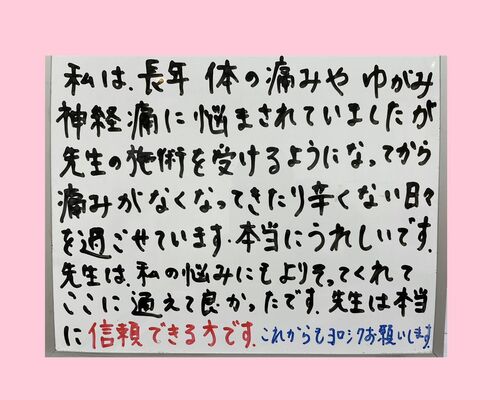 私は、長年 体の痛みや ゆがみ
神経痛に悩まされていましたが
先生の施術を受けるようになってから
痛みがなくなってきたり辛くない日々
を過ごせています。本当にうれしいです。
先生は、私の悩みにもよりそってくれて
ここに通えて良かったです。先生は本当
に信頼できる方です。これからもヨロシクお願いします。